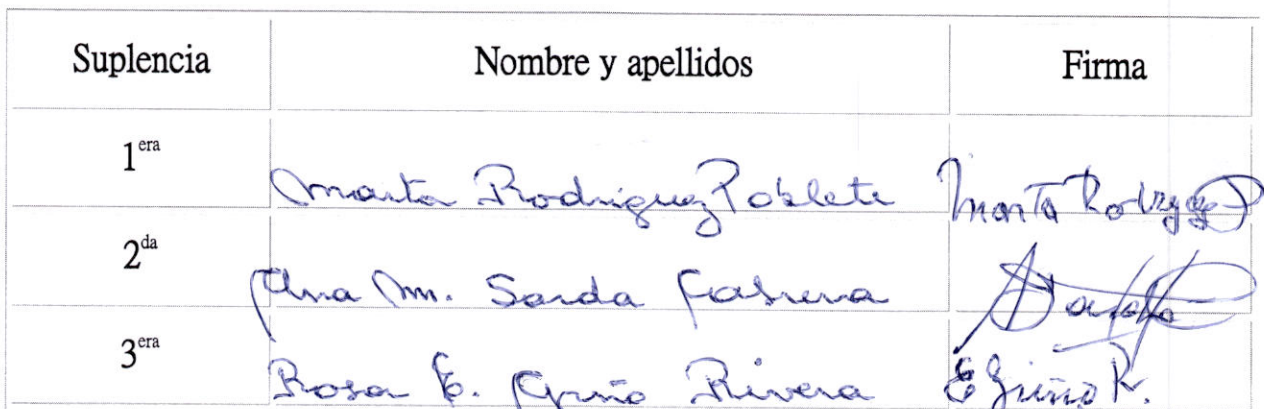 Suplencia Nombre y apellidos Firma
1era Marta Rodriguez Poblete Marta Rodriguez P
2da Ana M. Sarda Fabrera
3era Rosa E. Griño Rivera E Griño R.